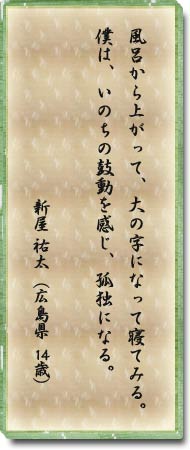 風呂から上がって、大の字になって寝てみる。
僕は、いのちの鼓動を感じ、孤独になる。
新屋 祐太（広島県 14歳）